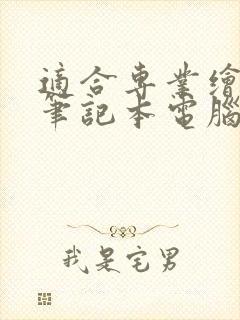 適合專業繪
筆記本電腦
我是宅男